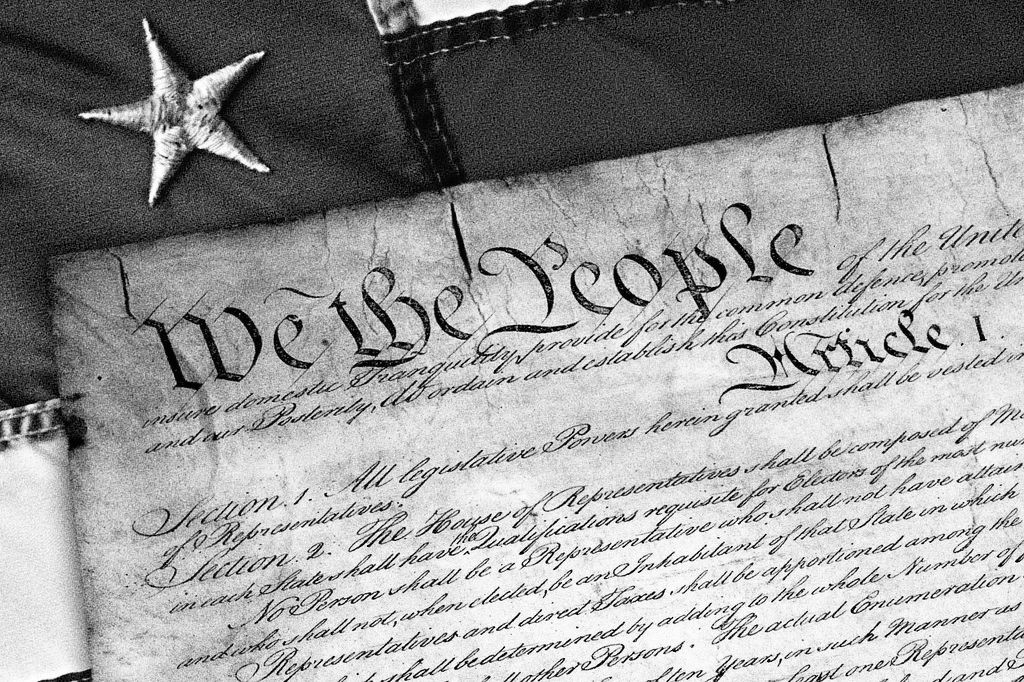 We the People of the Unite
insure domestic Tranquility, provide for the common defence, promote
and our Posterity, do ordain and establish this Constitution for the Un
Article. I.
Section. 1. All legislative Powers herein granted shall be vested in
of Representatives.
Section. 2. The House of Representatives shall be composed of Me
in each State shall have the Qualifications requisite for Electors of the most num
No Person shall be a Representative who shall not have attain
and who shall not, when elected, be an Inhabitant of that State in which
Representatives and direct Taxes shall be apportioned among the
shall be determined by adding to the whole Number of f
all other Persons. The actual Enumeration
of ten Years, in such Manner as
least one Representa